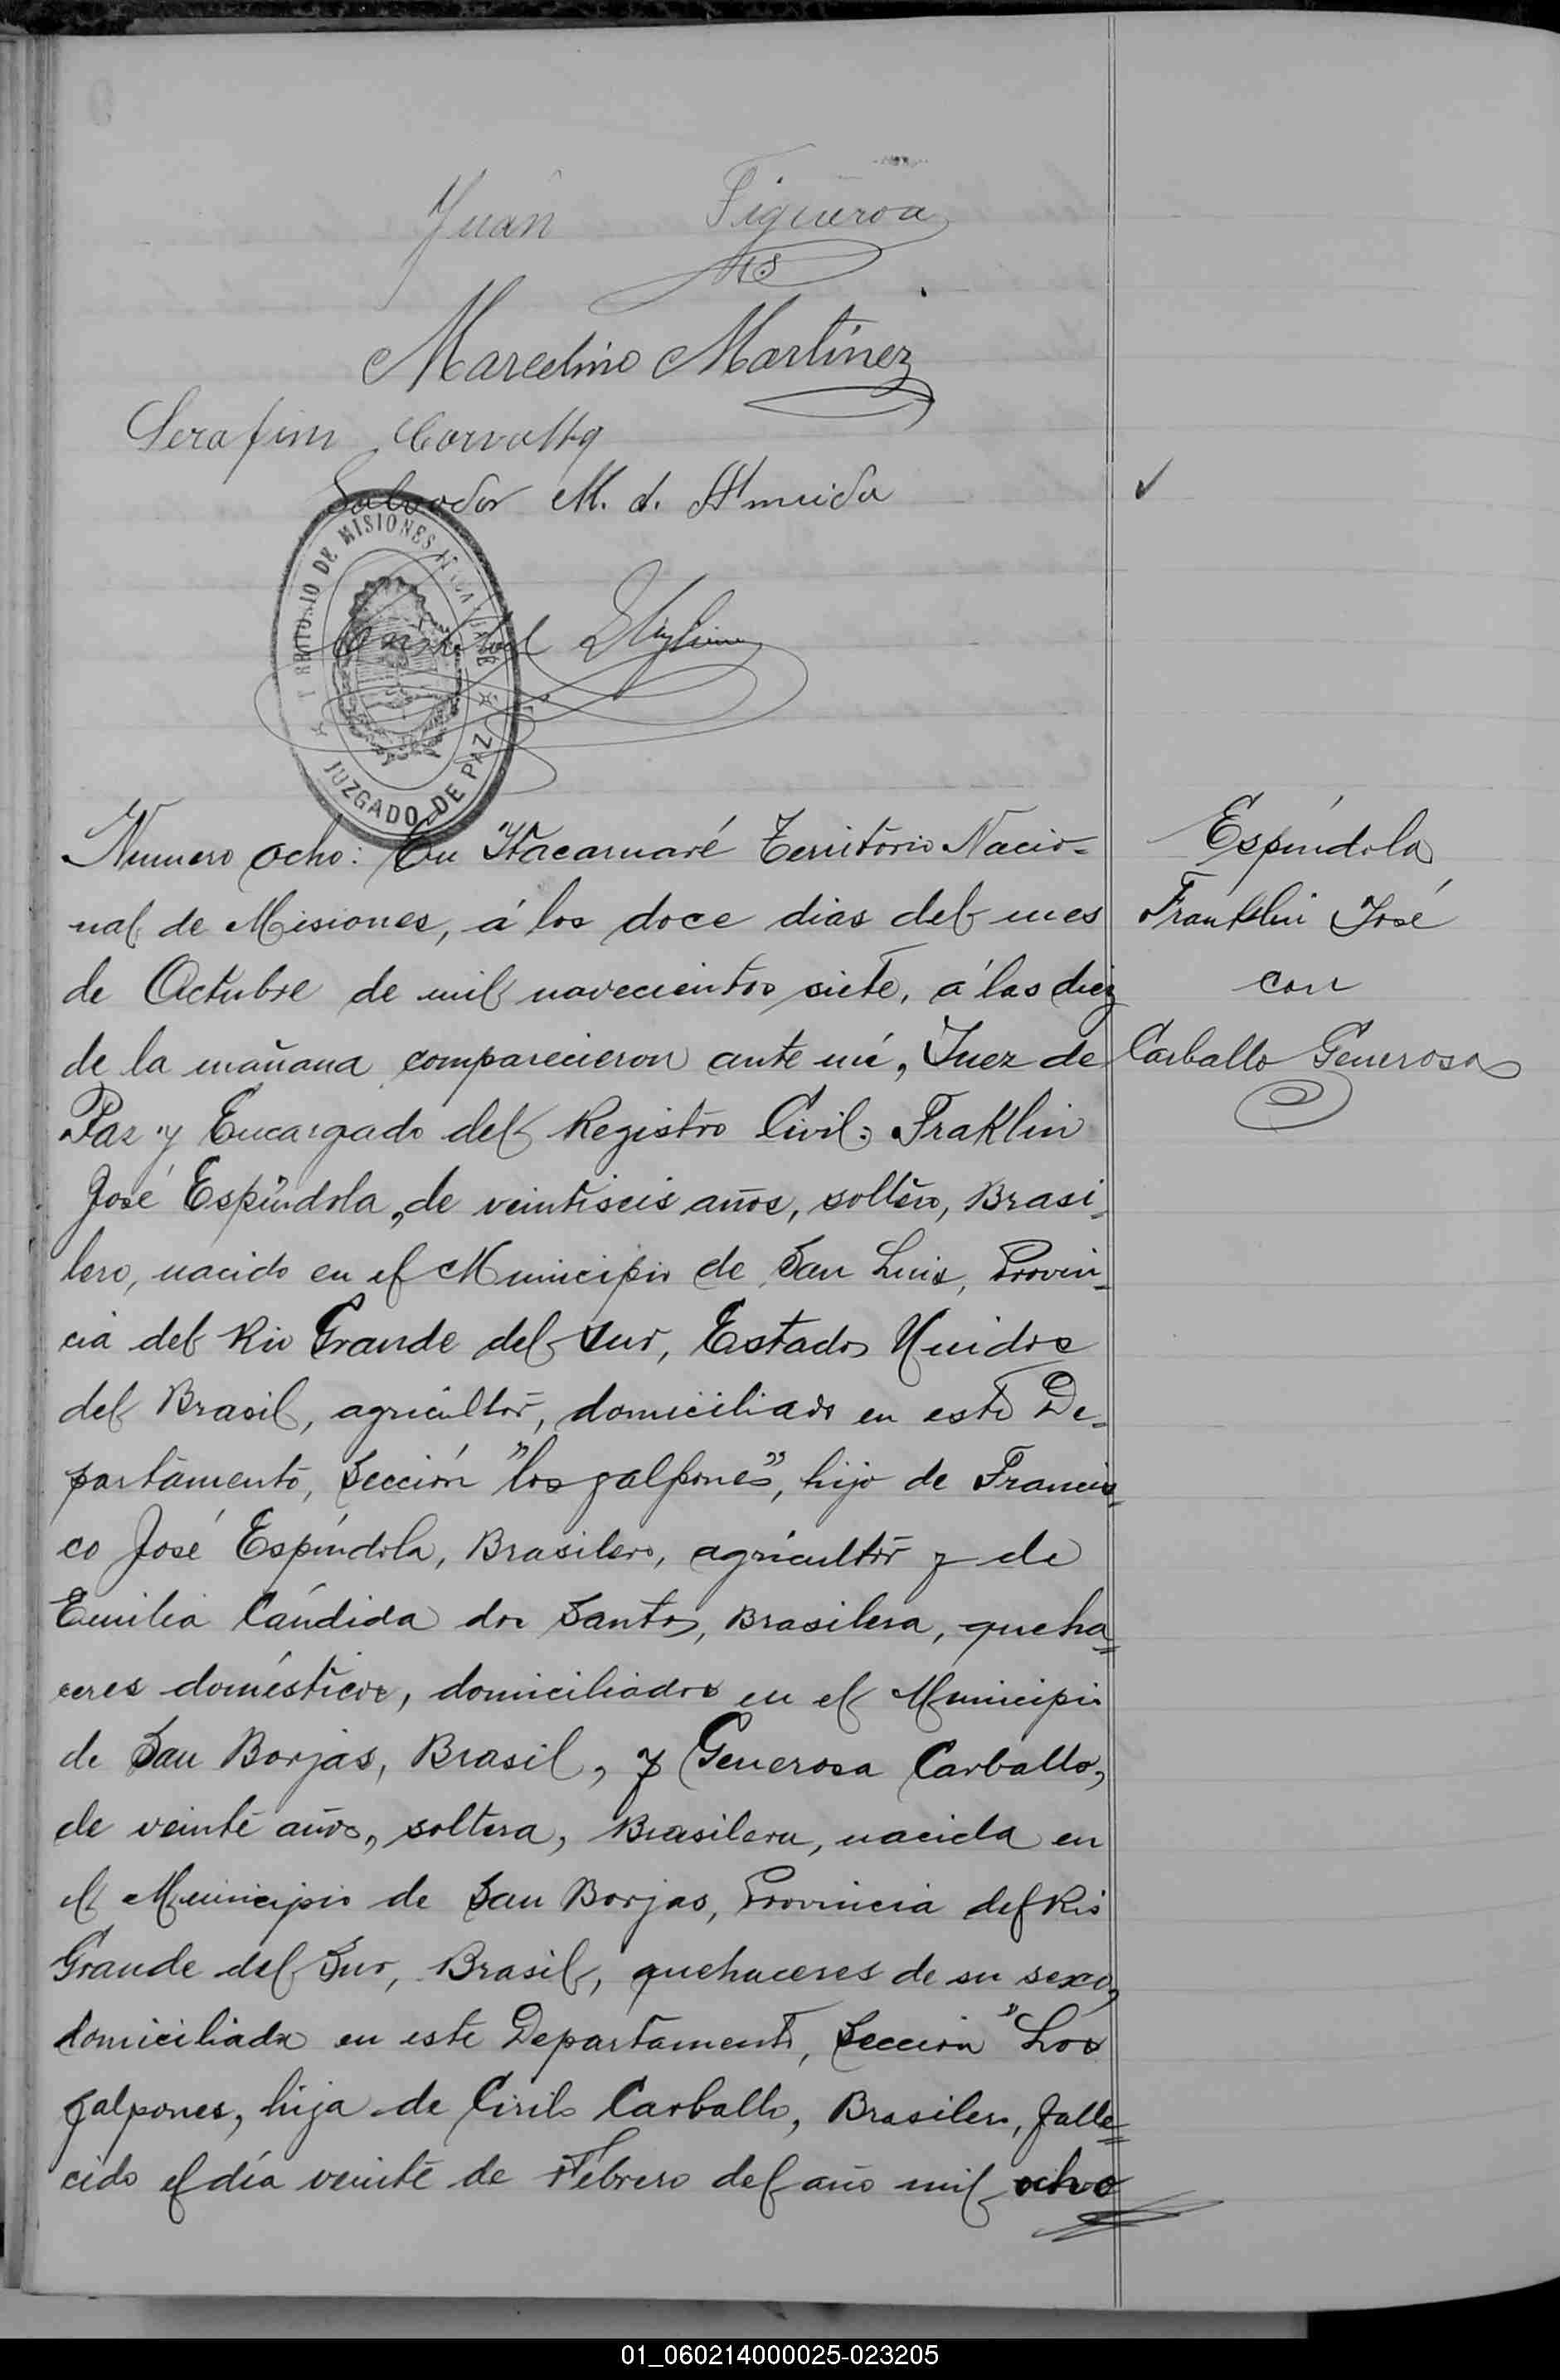 Juan Figueroa
Marcelino Martinez
Serafim
Salvador M. d. Almeida
TERRITORIO DE MISIONES
JUZGADO DE PAZ
Numero ocho: En Itacaruaré Territorio Nacio-
nal de Misiones, á los doce dias del mes
de Octubre de mil novecientos siete, á las diez
de la mañana comparecieron ante mí, Juez de
Paz y Encargado del Registro Civil: Fraklin
José Espíndola, de veintiseis años, soltero, Brasi-
lero, nacido en el Municipio de San Luis, Provin-
cia del Rio Grande del Sur, Estados Unidos
del Brasil, agricultor, domiciliado en este De-
partamento, Sección "los galpones", hijo de Francis-
co José Espíndola, Brasilero, agricultor y de
Emilia Cándida dos Santos, Brasilera, queha=
ceres domésticos, domiciliados en el Municipio
de San Borjas, Brasil, y Generosa Carballo,
de veinte años, soltera, Brasilera, nacida en
el Municipio de San Borjas, Provincia del Rio
Grande del Sur, Brasil, quehaceres de su sexo,
domiciliada en este Departamento, Sección "Los
galpones, hija de Cirilo Carballo, Brasilero, falle=
cido el día veinte de Febrero del año mil ocho
Espíndola
Franklin José
con
Carballo Generosa
01_060214000025-023205